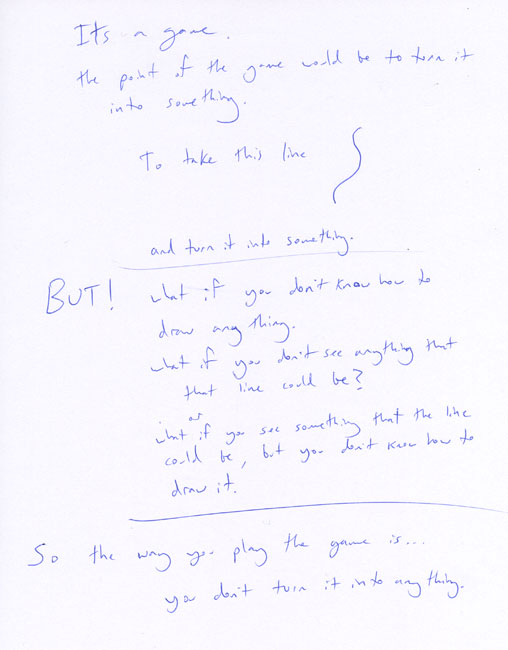 It's a game.
the point of the game would be to turn it
into something.
To take this line
and turn it into something.
BUT! what if you don't know how to
draw anything.
what if you don't see anything that
that line could be?
or
what if you see something that the line
could be, but you don't know how to
draw it.
So the way you play the game is...
you don't turn it into anything.